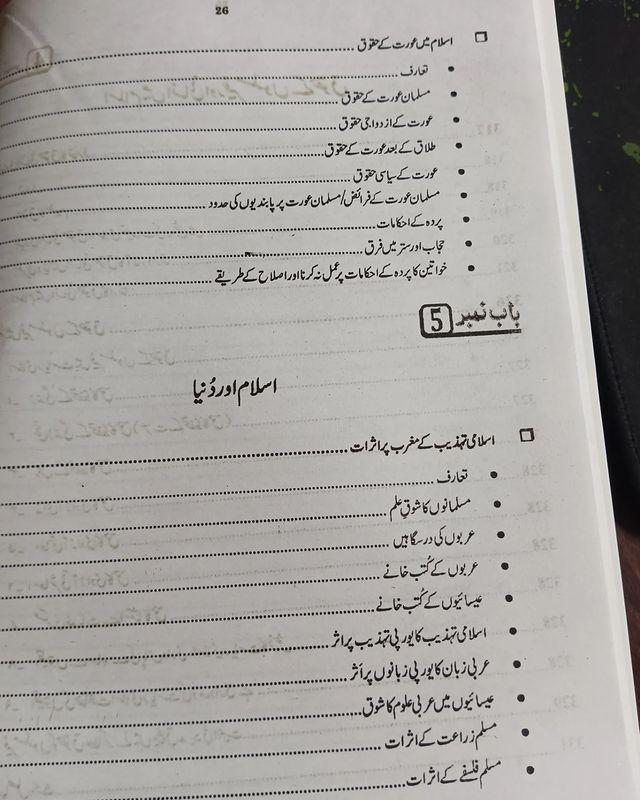 26
اسلام میں عورت کے حقوق
تعارف
مسلمان عورت کے حقوق
عورت کے ازدواجی حقوق
طلاق کے بعد عورت کے حقوق
عورت کے سیاسی حقوق
مسلمان عورت کے فرائض/مسلمان عورت پر پابندیوں کی حدود
پردہ کے احکامات
حجاب اور ستر میں فرق
خواتین کا پردہ کے احکامات پر عمل نہ کرنا اور اصلاح کے طریقے
باب نمبر 5
اسلام اور دُنیا
اسلامی تہذیب کے مغرب پر اثرات
تعارف
مسلمانوں کا شوقِ علم
عربوں کی درسگاہیں
عربوں کے کُتب خانے
عیسائیوں کے کُتب خانے
اسلامی تہذیب کا یورپی تہذیب پر اثر
عربی زبان کا یورپی زبانوں پر اَثر
عیسائیوں میں عربی علوم کا شوق
مسلم زراعت کے اثرات
مسلم فلسفے کے اثرات